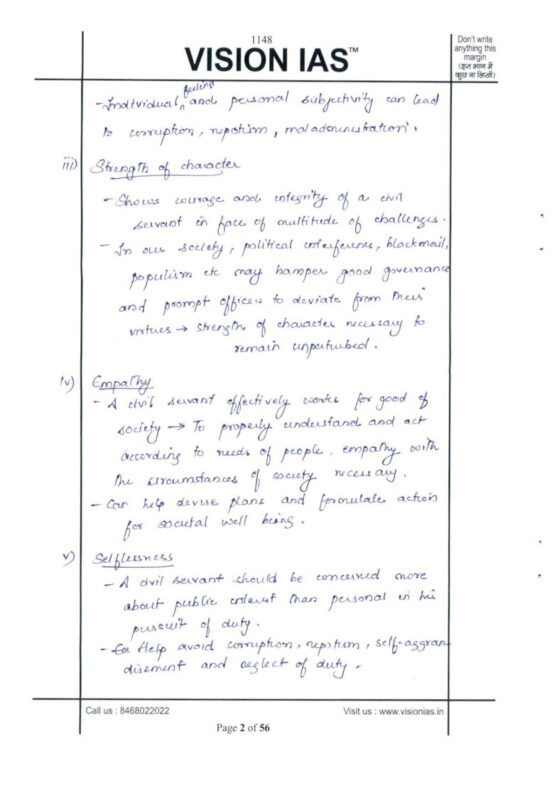 1148
VISION IAS™
Don't write
anything this
margin
(इस भाग में
कुछ ना लिखें)
feelings
- Individual and personal subjectivity can lead
to corruption, nepotism, maladministration.
iii) Strength of character
- Shows courage and integrity of a civil
servant in face of multitude of challenges.
- In our society, political interference, blackmail,
populism etc may hamper good governance
and prompt officers to deviate from their
virtues → strength of character necessary to
remain unperturbed.
iv) Empathy
- A civil servant effectively works for good of
society → To properly understand and act
according to needs of people, empathy with
the circumstances of society necessary.
- Can help devise plans and formulate action
for societal well being.
v) Selflessness
- A civil servant should be concerned more
about public interest than personal in his
pursuit of duty.
- Help avoid corruption, nepotism, self-aggran
disement and neglect of duty.
Call us : 8468022022
Visit us : www.visionias.in
Page 2 of 56